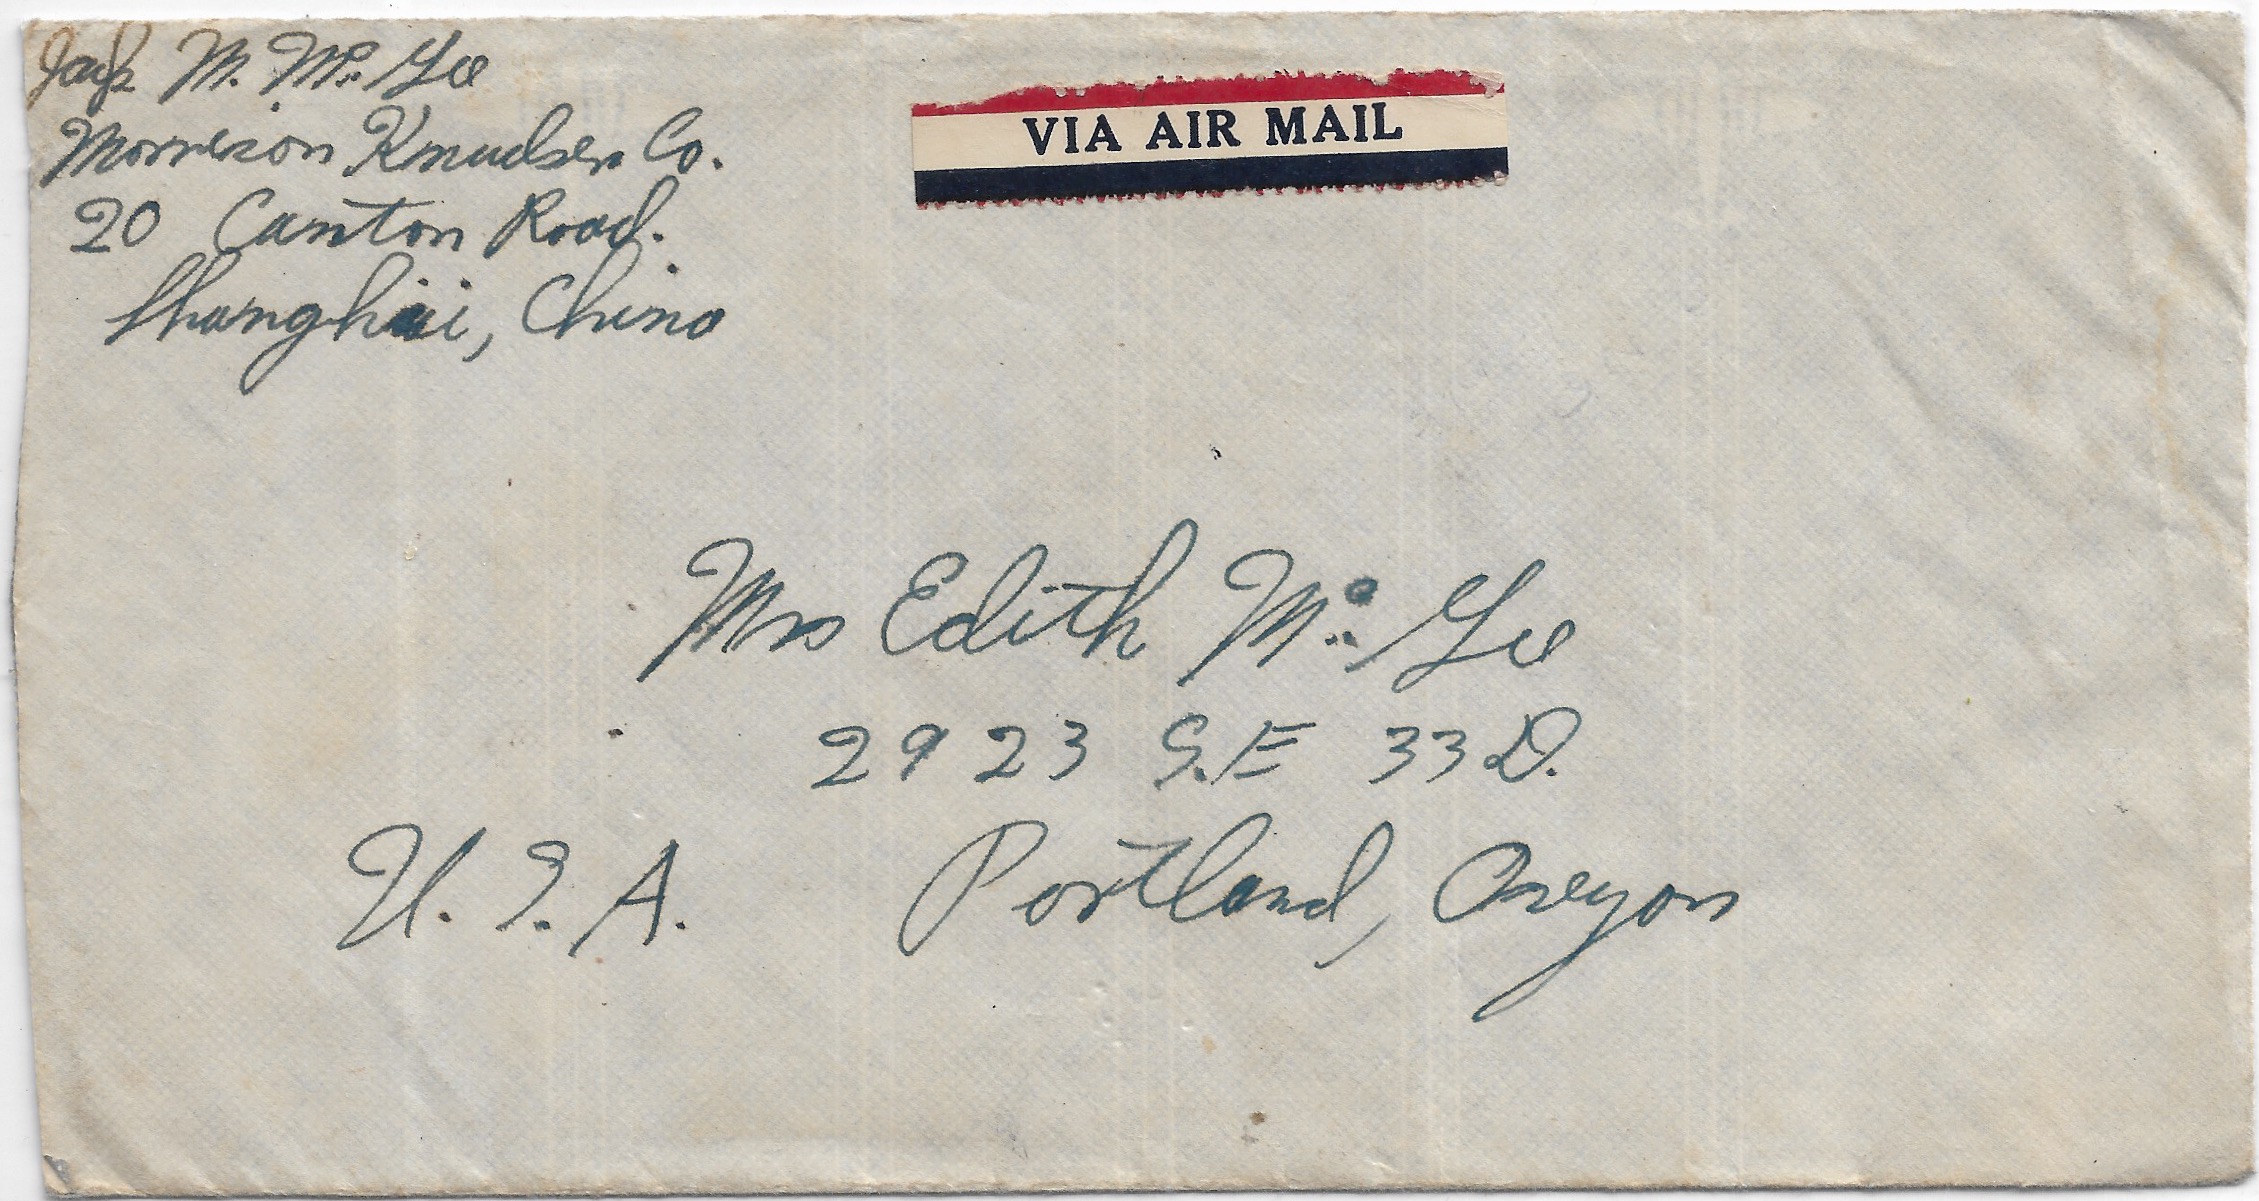 Jack M. McGee
Morrison Knudsen Co.
20 Canton Road.
Shanghai, China
VIA AIR MAIL
Mrs Edith McGee
2923 S.E 33D.
Portland, Oregon
U.S.A.